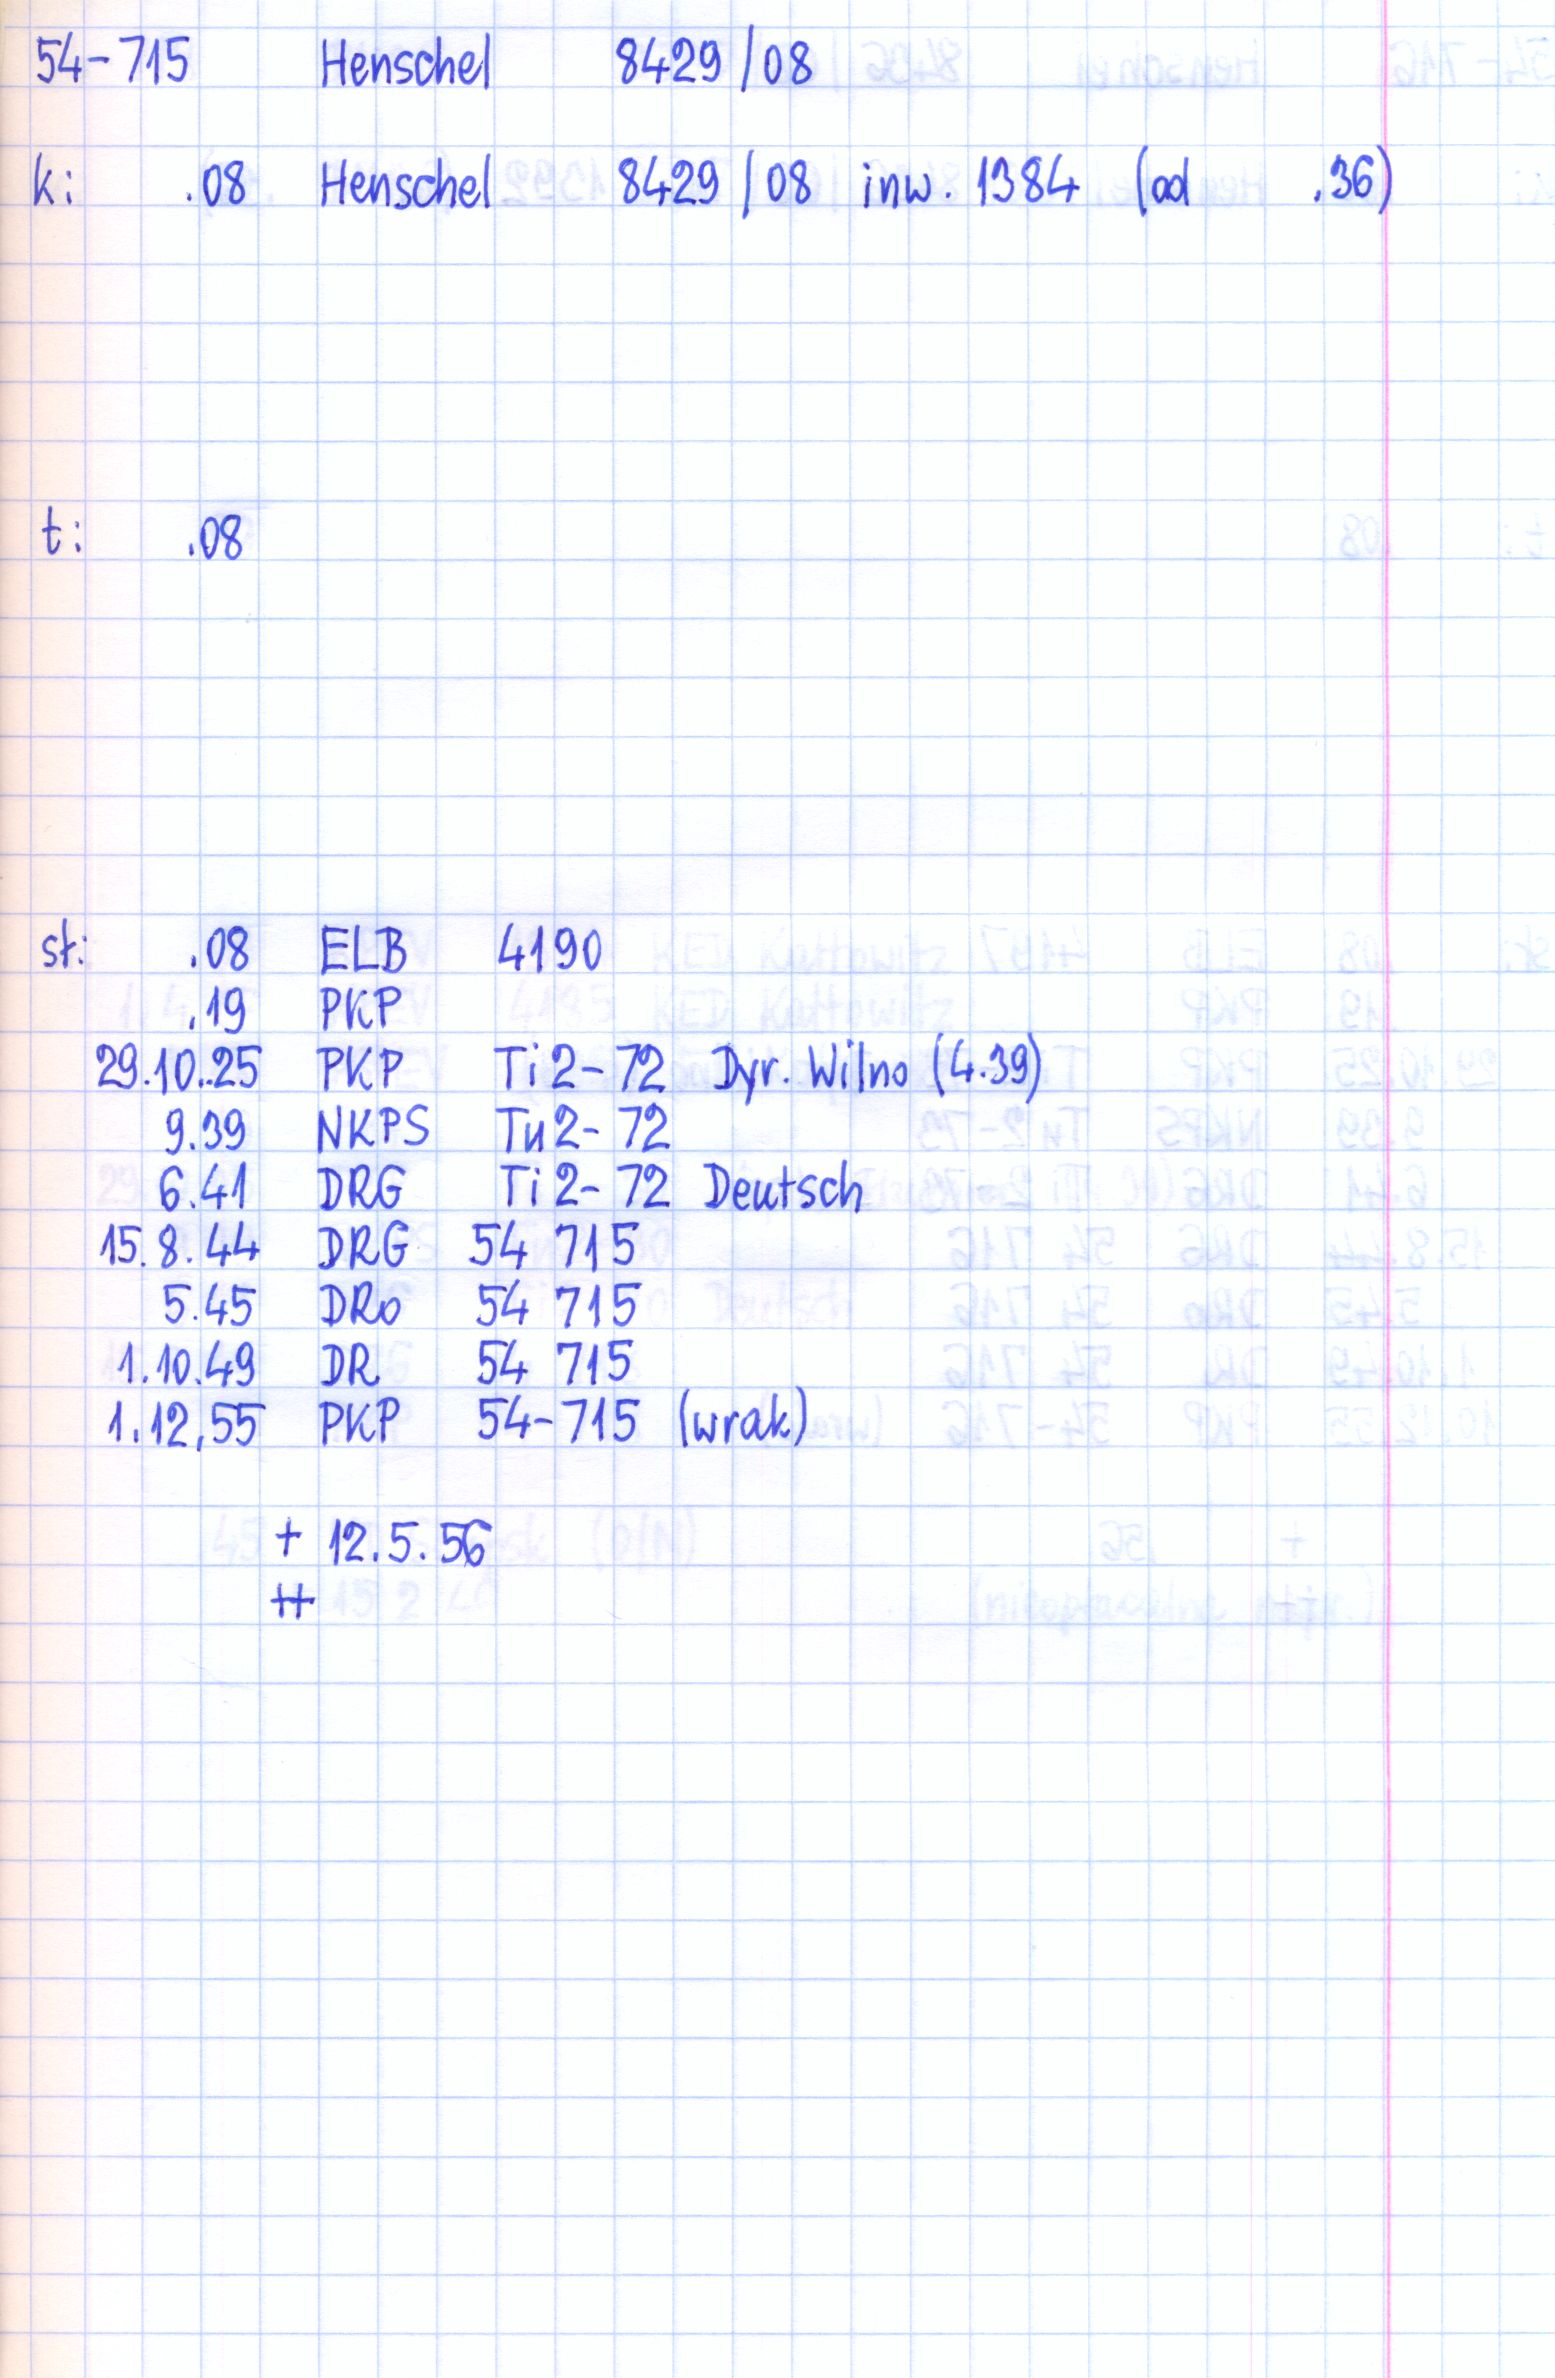 54-715 Henschel 8429/08
k: .08 Henschel 8429/08 inw. 1384 (od .36)
t: .08
st: .08 ELB 4190
.19 PKP
29.10.25 PKP Ti2-72 Dyr. Wilno (4.39)
9.39 NKPS Tu2-72
6.41 DRG Ti2-72 Deutsch
15.8.44 DRG 54 715
5.45 DRo 54 715
1.10.49 DR 54 715
1.12,55 PKP 54-715 (wrak)
+ 12.5.56
++